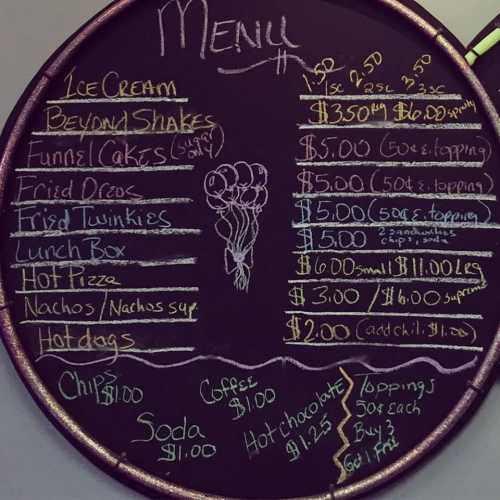 MENU
ICE CREAM 1.50 1SC 2.50 2SC 3.50 3SC
BEYOND SHAKES $3.50 Reg $6.00 specialty
FUNNEL CAKES (sugar only) $5.00 (50¢ E. topping)
Fried Oreos $5.00 (50¢ E. topping)
Fried Twinkies $5.00 (50¢ E. topping)
LUNCH BOX $5.00 2 sandwiches chips, soda
HOT PIZZA $6.00 small $11.00 LRG
NACHOS/NACHOS sup $3.00 / $6.00 supreme
Hotdogs $2.00 (add chili $1.00)
CHIPS $1.00
Soda $1.00
COFFEE $1.00
Hot chocolate $1.25
Toppings
50¢ Each
Buy 3
Get 1 Free